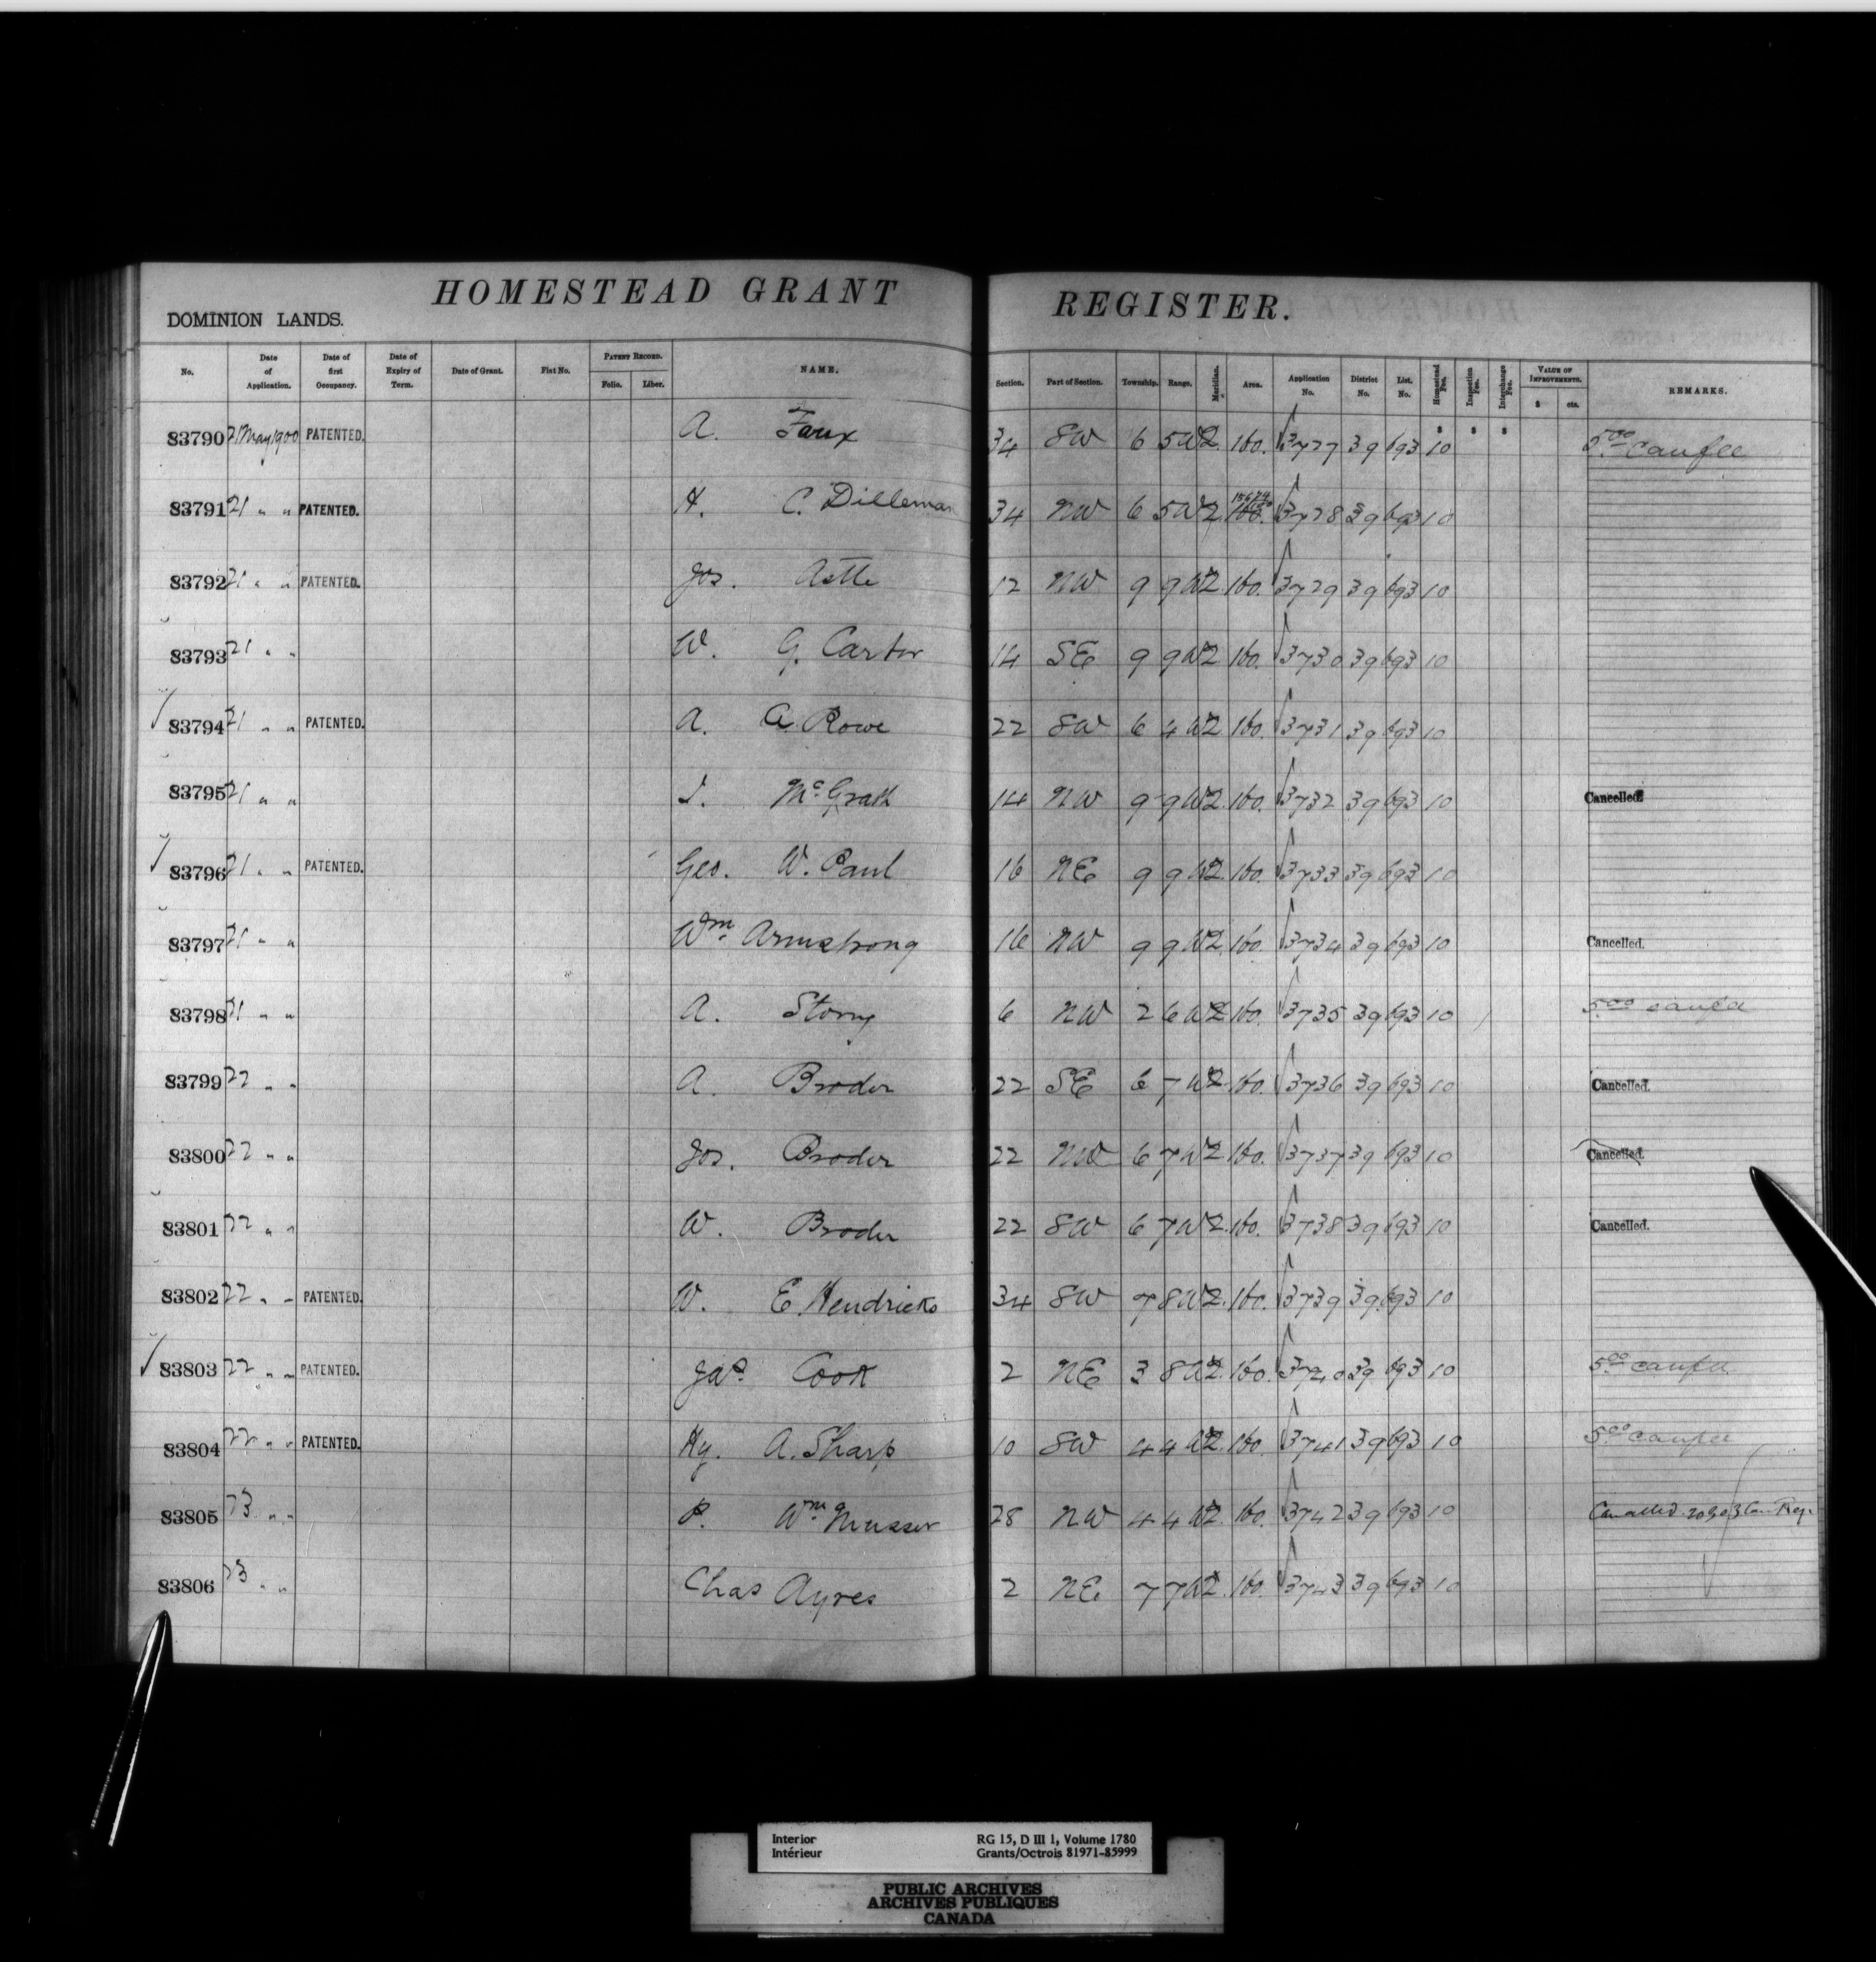 HOMESTEAD GRANT REGISTER.
DOMINION LANDS.
No. Date of Application. Date of first Occupancy. Date of Expiry of Term. Date of Grant. Fiat No. PATENT RECORD. Folio. Liber. NAME. Section. Part of Section. Township. Range. Meridian. Area. Application No. District No. List. No. Homestead Fee. Inspection Fee. Interchange Fee. VALUE OF IMPROVEMENTS. $ cts. REMARKS.
83790 21 May 1900 PATENTED. A. Faux 34 SW 6 5 W2 160. 3727 39 693 10 5.00 canfee
83791 21 " " PATENTED. H. C. Dilleman 34 NW 6 5 W2 160. 3728 39 693 10
83792 21 " " PATENTED. Jos. Astle 12 NW 9 9 W2 160. 3729 39 693 10
83793 21 " " W. G. Carter 14 SE 9 9 W2 160. 3730 39 693 10
83794 21 " " PATENTED. A. A. Rowe 22 SW 6 4 W2 160. 3731 39 693 10
83795 21 " " J. McGrath 14 NW 9 9 W2 160. 3732 39 693 10 Cancelled.
83796 21 " " PATENTED. Geo. W. Paul 16 NE 9 9 W2 160. 3733 39 693 10
83797 21 " " Wm. Armstrong 16 NW 9 9 W2 160. 3734 39 693 10 Cancelled.
83798 21 " " A. 6 NW 2 6 W2 160. 3735 39 693 10 5.00
83799 22 " " A. Broder 22 SE 6 7 W2 160. 3736 39 693 10 Cancelled.
83800 22 " " Jos. Broder 22 NW 6 7 W2 160. 3737 39 693 10 Cancelled.
83801 22 " " W. Broder 22 SW 6 7 W2 160. 3738 39 693 10 Cancelled.
83802 22 " " PATENTED. W. E. Hendricks 34 SW 7 8 W2 160. 3739 39 693 10
83803 22 " " PATENTED. Jas. Cook 2 NE 3 8 W2 160. 3740 39 693 10 5.00 canfee
83804 22 " " PATENTED. Hy. A. Sharp 10 SW 4 4 W2 160. 3741 39 693 10 5.00 canfee
83805 23 " " P. Wm. Musser 28 NW 4 4 W2 160. 3742 39 693 10 Cancelled
83806 23 " " Chas Ayres 2 NE 7 7 W2 160. 3743 39 693 10
Interior RG 15, D III 1, Volume 1780
Intérieur Grants/Octrois 81971-85999
PUBLIC ARCHIVES
ARCHIVES PUBLIQUES
CANADA